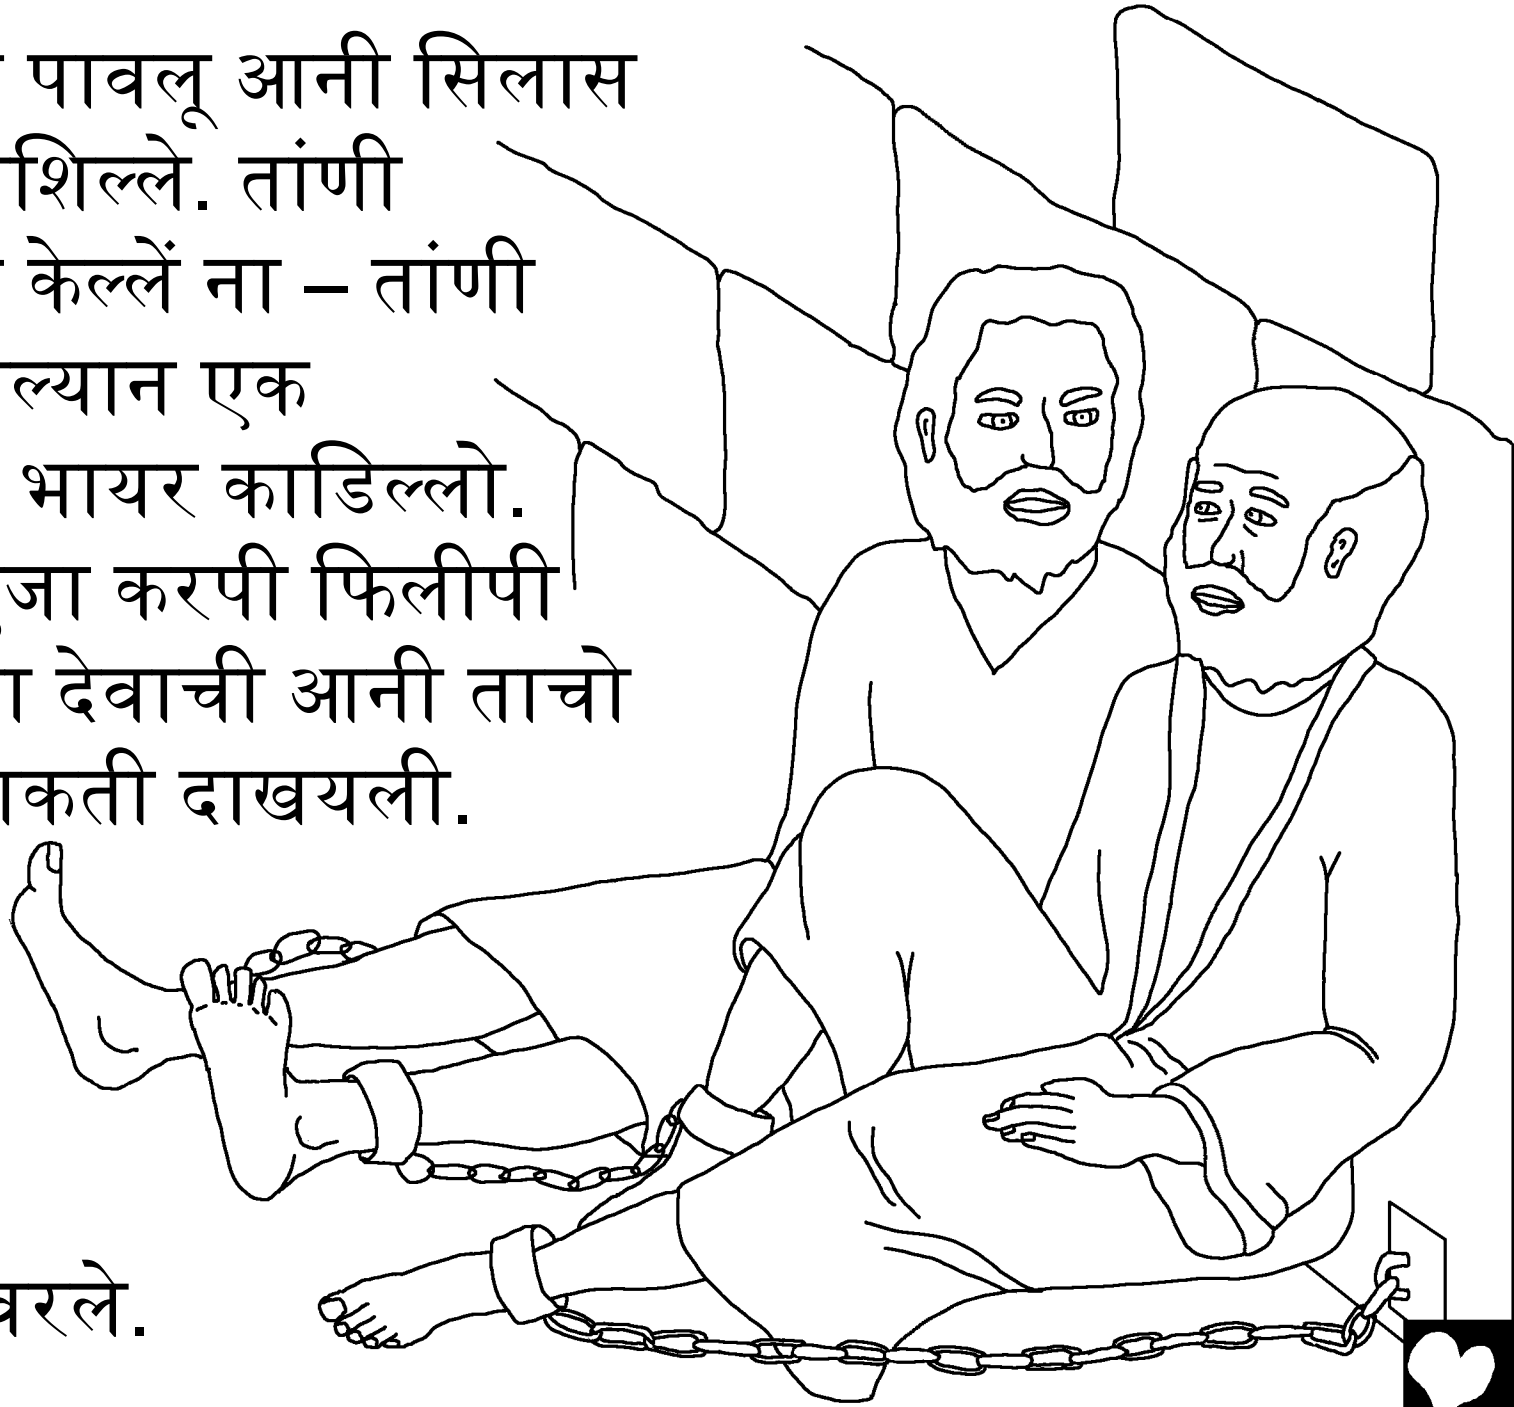 पावलू आनी सिलास
शिल्ले. तांणी
केल्लें ना – तांणी
ल्यान एक
भायर काडिल्लो.
करपी फिलीपी
देवाची आनी ताचो
दाखयली.